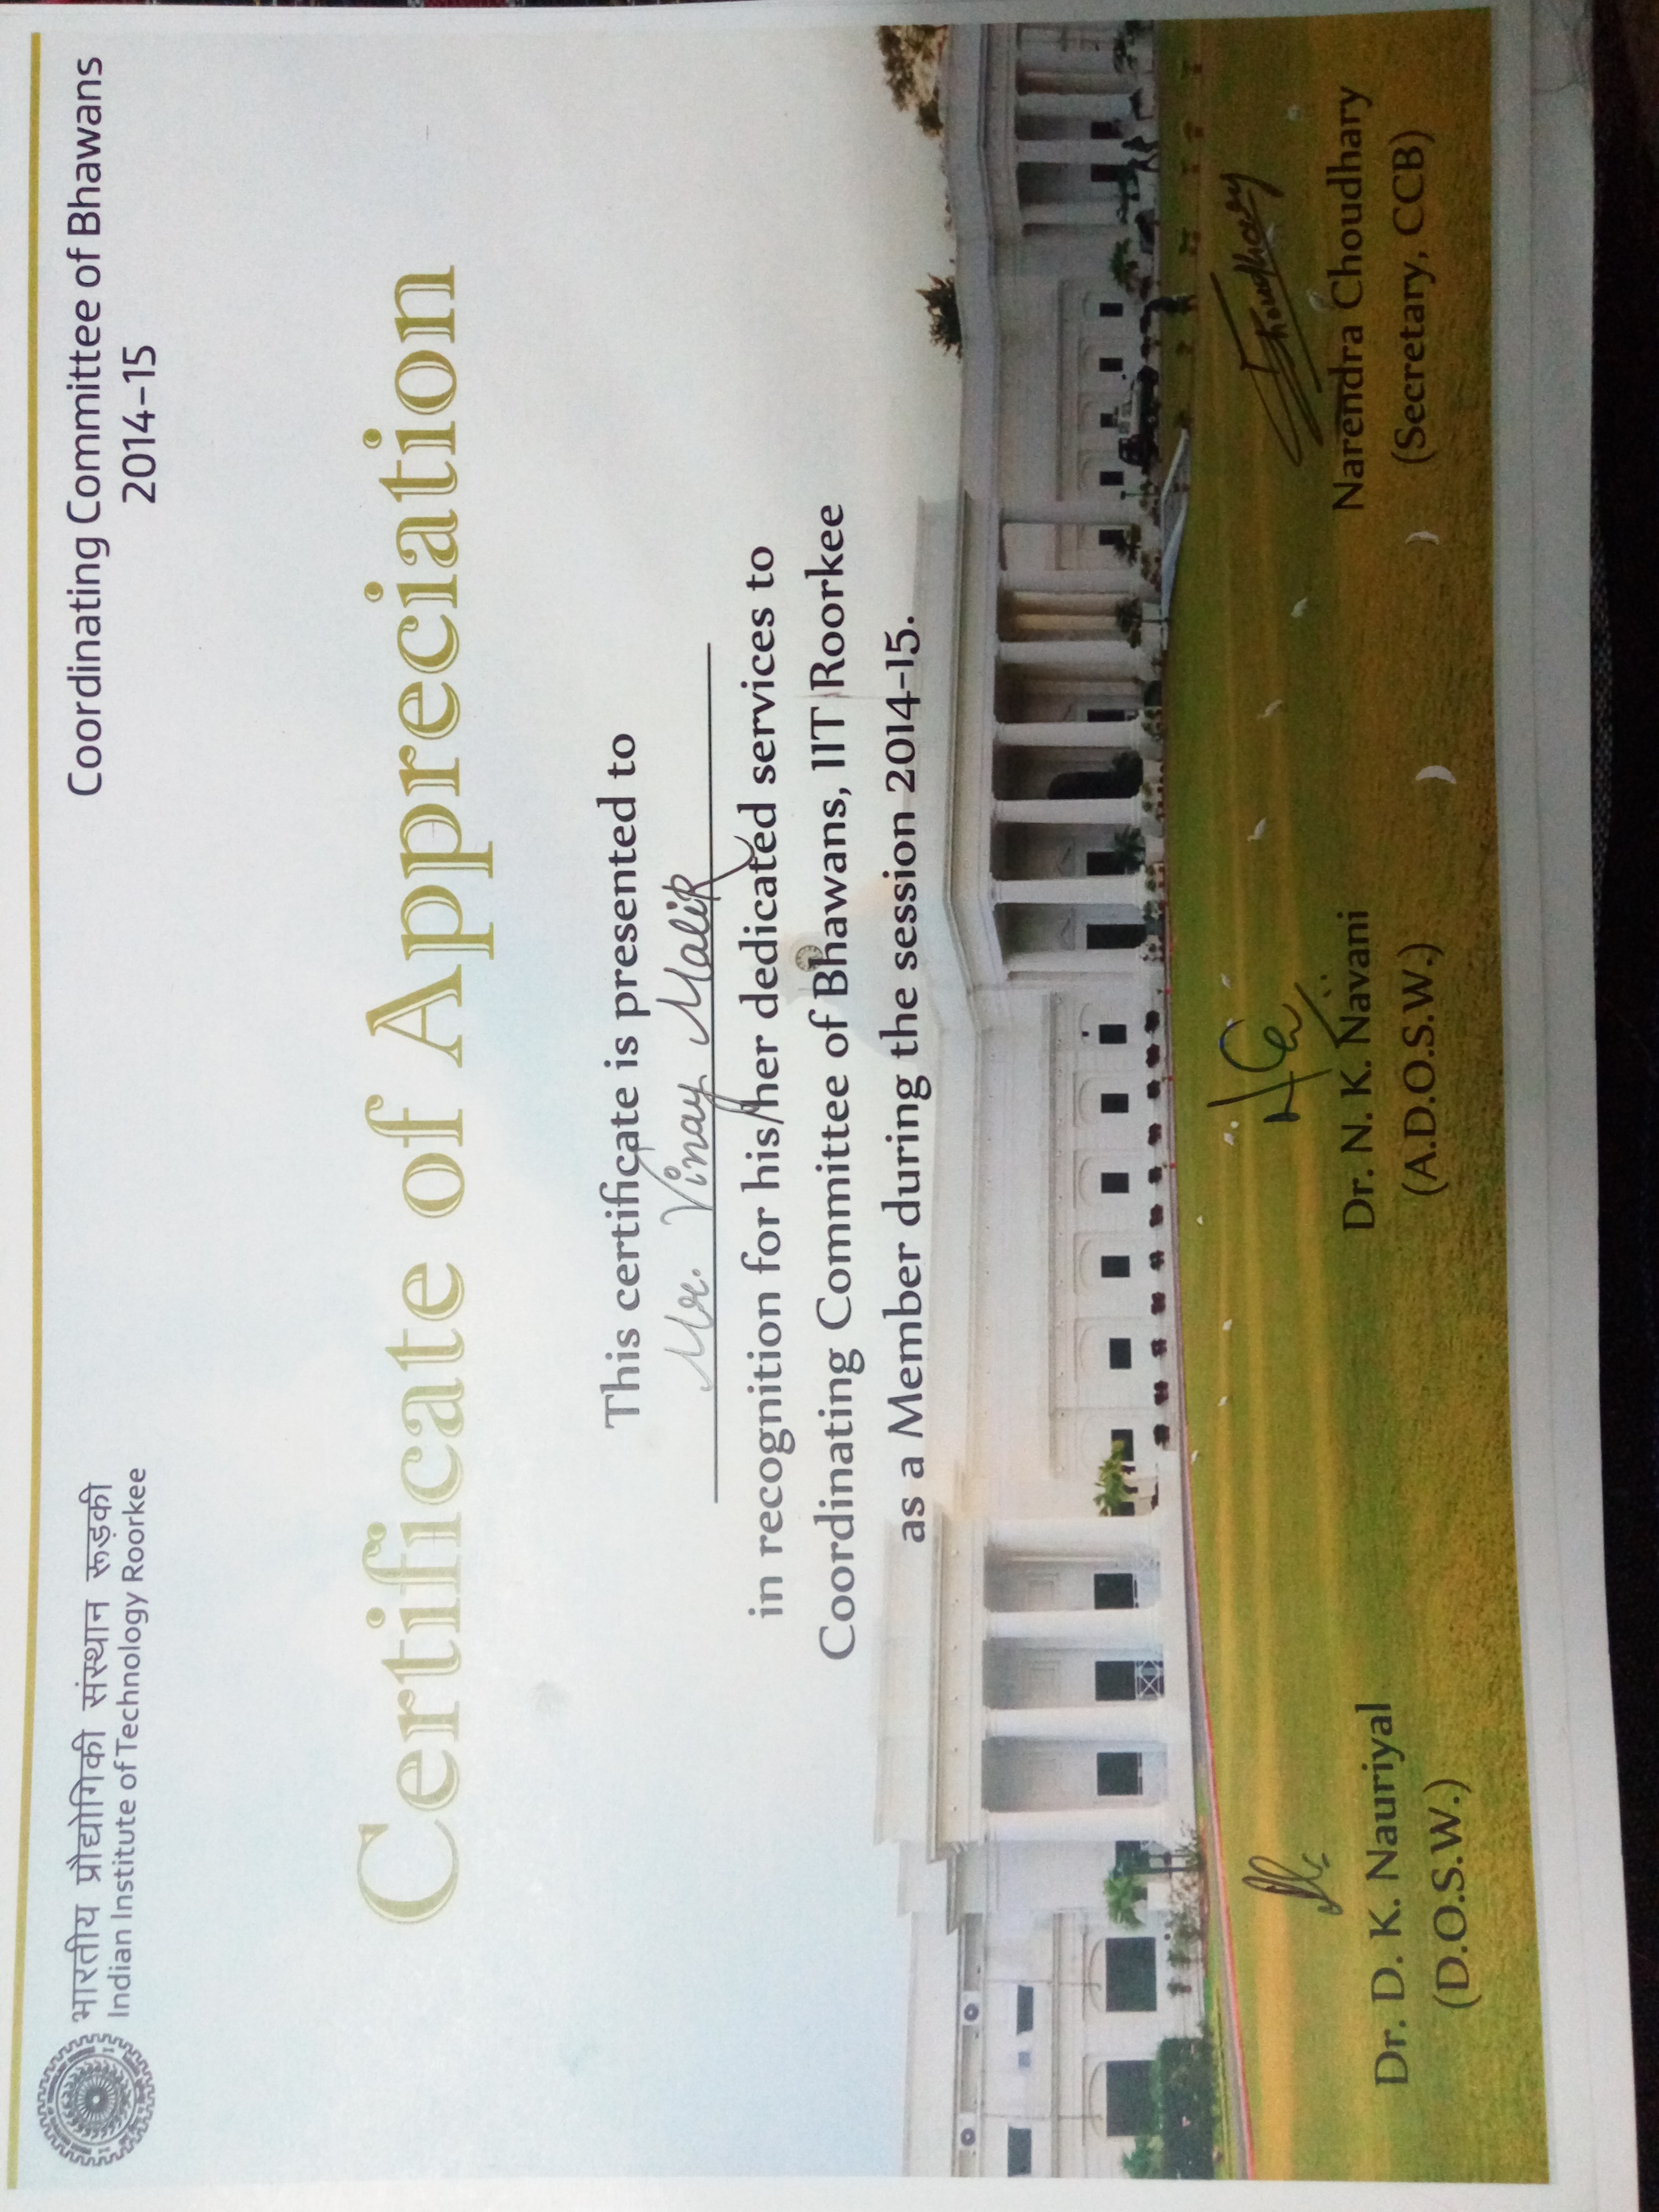 भारतीय प्रौद्योगिकी संस्थान रूड़की
Indian Institute of Technology Roorkee
Coordinating Committee of Bhawans
2014-15
Certificate of Appreciation
This certificate is presented to
Mr. Vinay Malik
in recognition for his/her dedicated services to
Coordinating Committee of Bhawans, IIT Roorkee
as a Member during the session 2014-15.
Dr. D. K. Nauriyal
(D.O.S.W.)
Dr. N. K. Navani
(A.D.O.S.W.)
Choudhary
Narendra Choudhary
(Secretary, CCB)